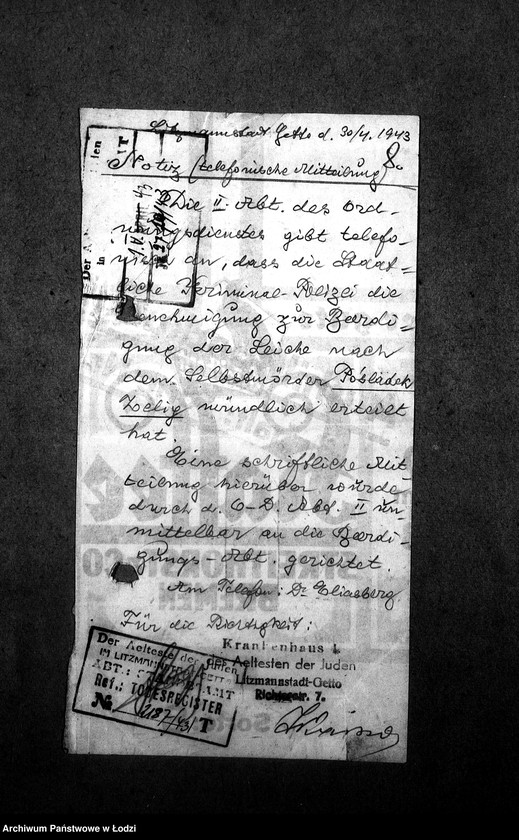 Litzmannstadt Getto d. 30/4. 1943
8.
Notiz (telefonische Mitteilung)
Die II. Abt. des Ord-
nungsdienstes gibt telefo-
nisch an, dass die Staat-
liche Kriminal-Polizei die
Genehmigung zur Beerdi-
gung der Leiche nach
dem Selbstmörder Posladek
Zelig mündlich erteilt
hat.
Eine schriftliche Mit-
teilung hierüber würde
durch d. O-D. Abt. II un-
mittelbar an die Beerdi-
gungs-Abt. gerichtet.
Am Telefon: Dr Eliasberg
Für die Richtigkeit:
Krankenhaus I
des Aeltesten der Juden
Litzmannstadt-Getto
Richterstr. 7.
Der Aelteste der Juden
IM LITZMANNSTADT-GETTO
ABT.: STANDESAMT
Ref.: TODESREGISTER
№ 2187/43/T
Archiwum Państwowe w Łodzi